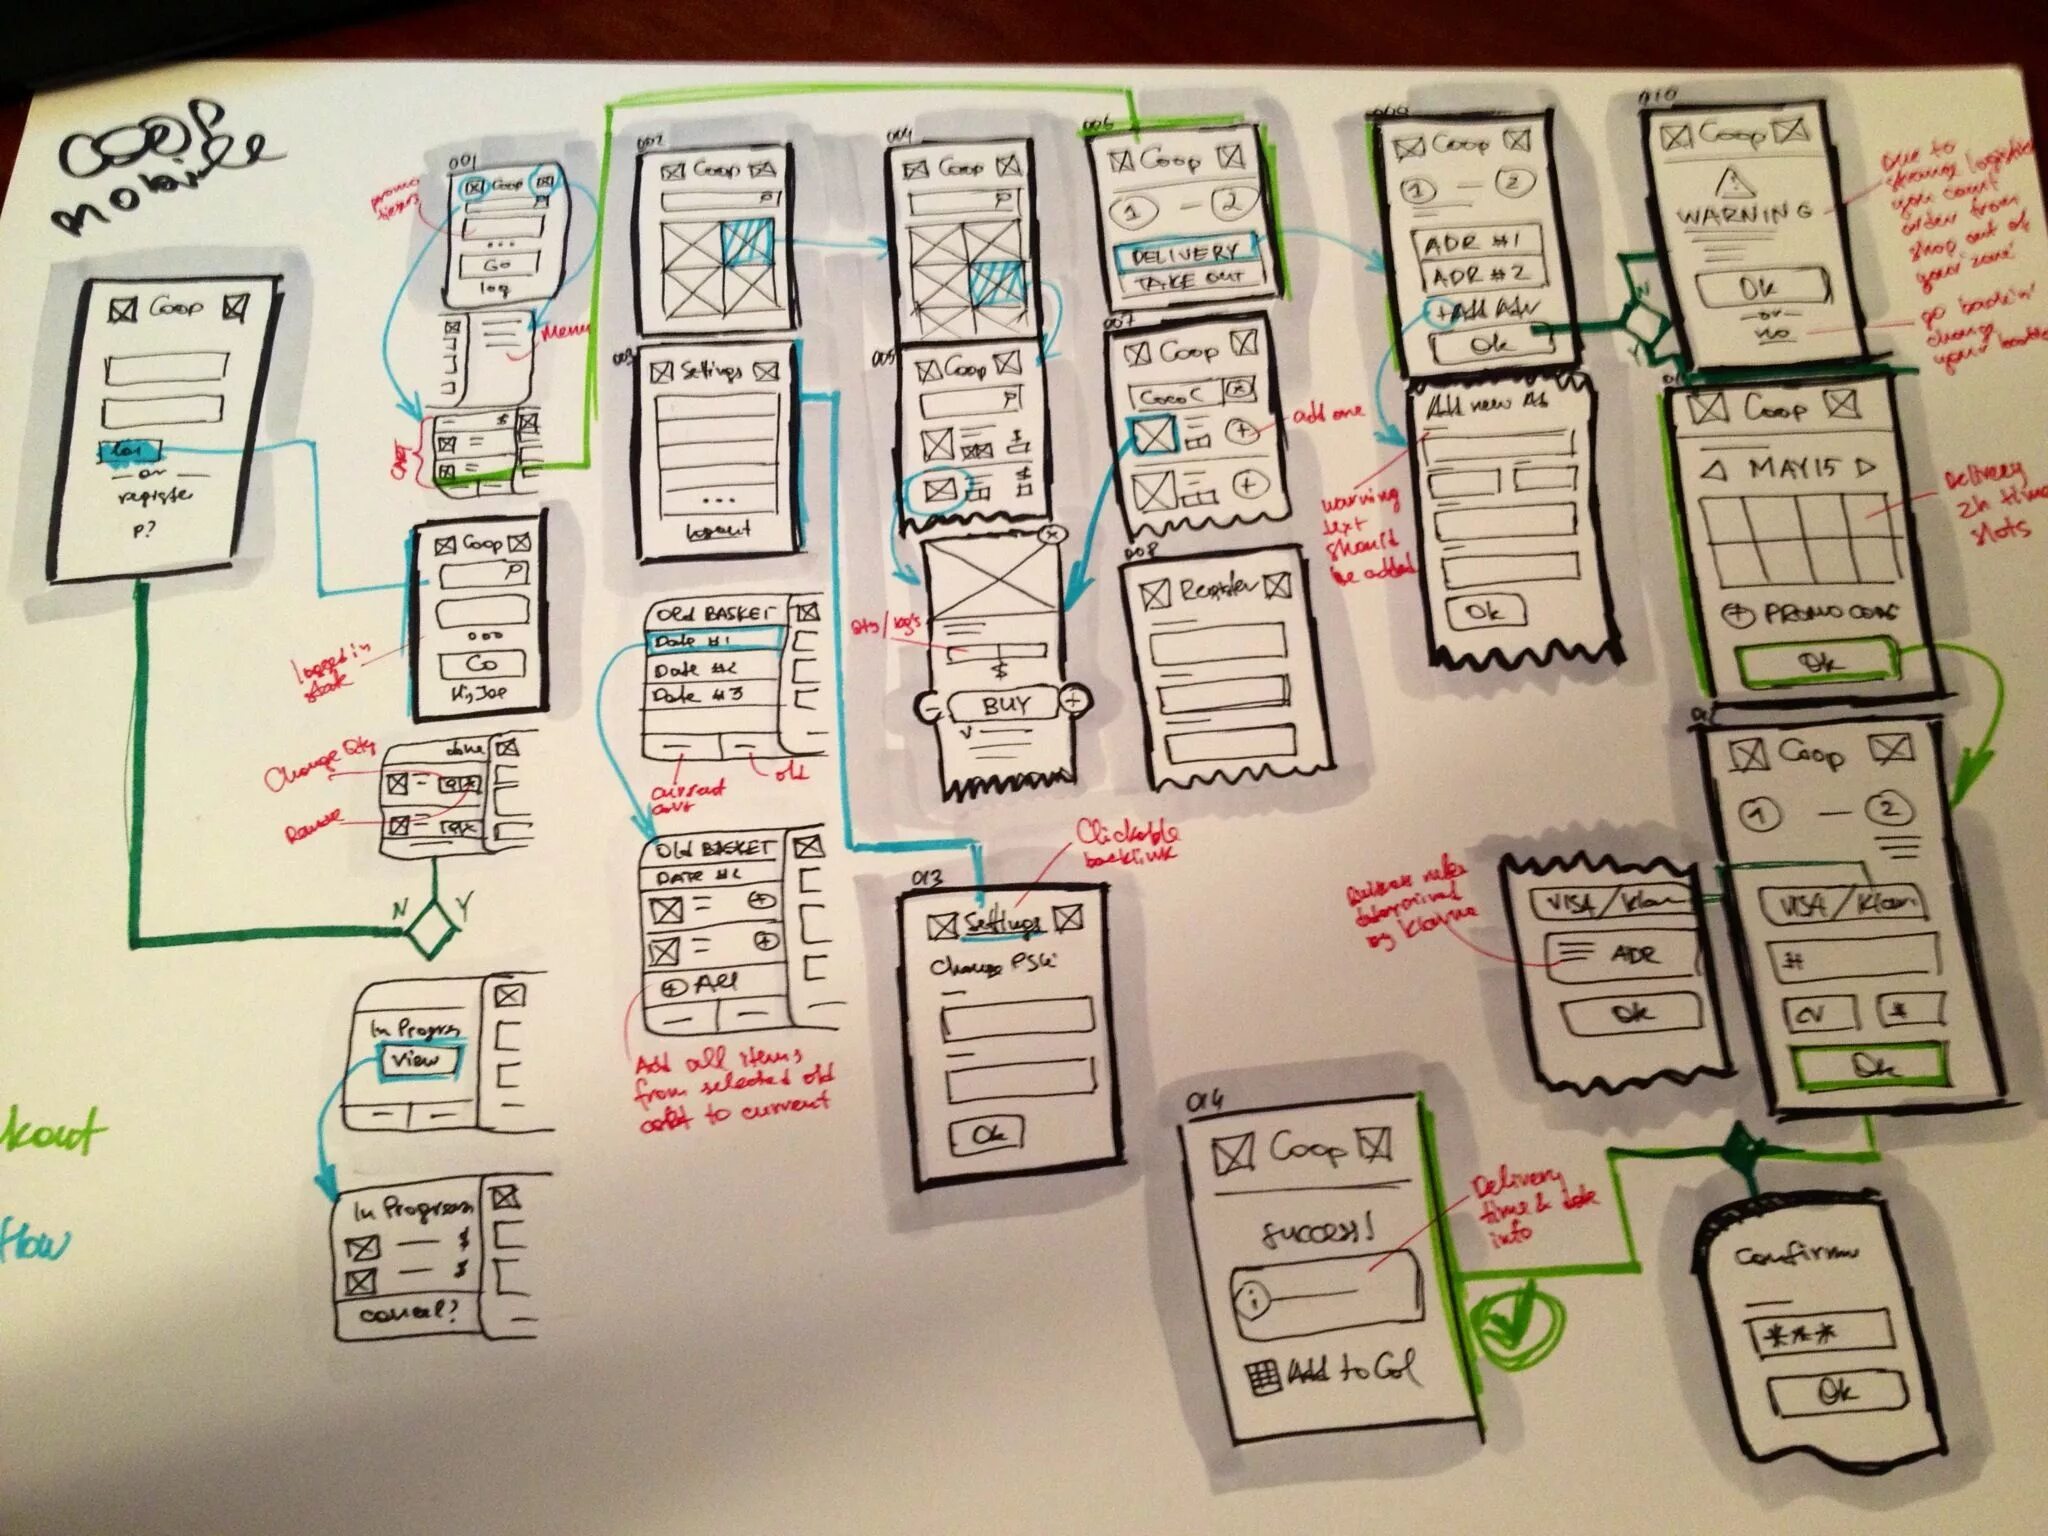 COOP
Mobile
Coop
or
register
P?
001
promo
Coop
Go
log
Menu
CART
$
Coop
P
Go
Hi, Joe
logged in
state
done
Change Qty
Remove
N
Y
In Progress
View
In Progress
$
$
cancel?
flow
002
Coop
P
003
Settings
...
logout
Old BASKET
Date #1
Date #2
Date #3
current
cart
old
Old BASKET
DATE #2
+ All
Add all items
from selected old
cart to current
004
Coop
P
005
Coop
P
$
$
x
Qty/
$
- BUY +
013
Clickable
backlink
Settings
Change
Ok
006
Coop
1 — 2
DELIVERY
TAKE OUT
007
Coop
Coco C x
+
add one
+
008
Register
Coop
1 — 2
ADR #1
ADR #2
+ Add Adr
Ok
Add new
Ok
warning
text
should
be added
N
Y
010
Coop
!
WARNING
Ok
or
no
Due to
strong logistic
you can't
order from
shop out of
your zone
go back
change
your basket
Coop
MAY 15
+ PROMO CODE
Ok
Delivery
2h time
slots
Coop
1 — 2
VISA/Klarn
#
CV
*
Ok
VISA/Klarn
ADR
Ok
determined
by Klarna
014
Coop
SUCCESS!
i
Add to Cal
Delivery
time & date
info
Confirm
***
Ok